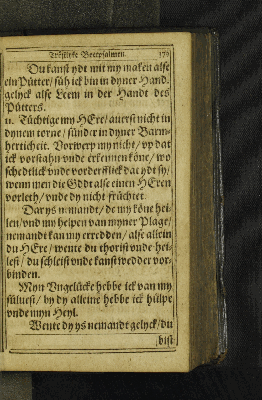 Tröstlyke Beetpsalmen. 170
Du kanst ydt mit my maken alse
ein Pütter / süh ick bin in dyner Hand.
gelyck alse Leem in der Handt des
Pütters.
u. Tüchtige my HEre / auerst nicht in
dynem torne / sünder in dyner Barm-
herticheit. Vorwerp my nicht / vp dat
ick vorstahn vnde erkennen köne / wo
schedtlick vnde vorderfflick dat ydt sy /
wenn men die Godt alse einen HEren
vorleth / vnde dy nicht früchtet.
Dar ys nemandt / de my köne hei-
len / vnd my helpen van myner Plage /
nemandt kan my erredden / alse allein
du HEre / wente du thorist vnde hei-
lest / du schleist vnde kanst wedder vor-
binden.
Myn Vngelücke hebbe ick van my
süluest / by dy alleine hebbe ick hülpe
vnde myn Heyl.
Wente dy ys nemandt gelyck / du
bist